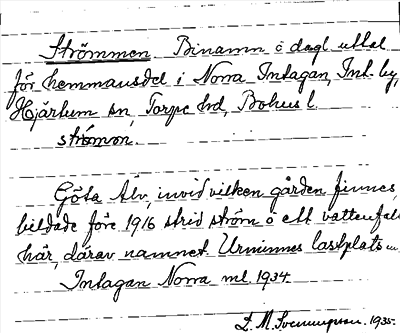 Strömmen. Binamn o dagl uttal
för hemmansdel i Norra Intagan, Int. by,
Hjärtum sn, Torpe hd, Bohus l.
strömon.
Göta Älv, invid vilken gården finnes,
bildade före 1916 strid ström o ett vattenfall
här, därav namnet. Urminnes lastplats
Intagan Norra ml. 1934.
L. M. Svenungsson. 1935.